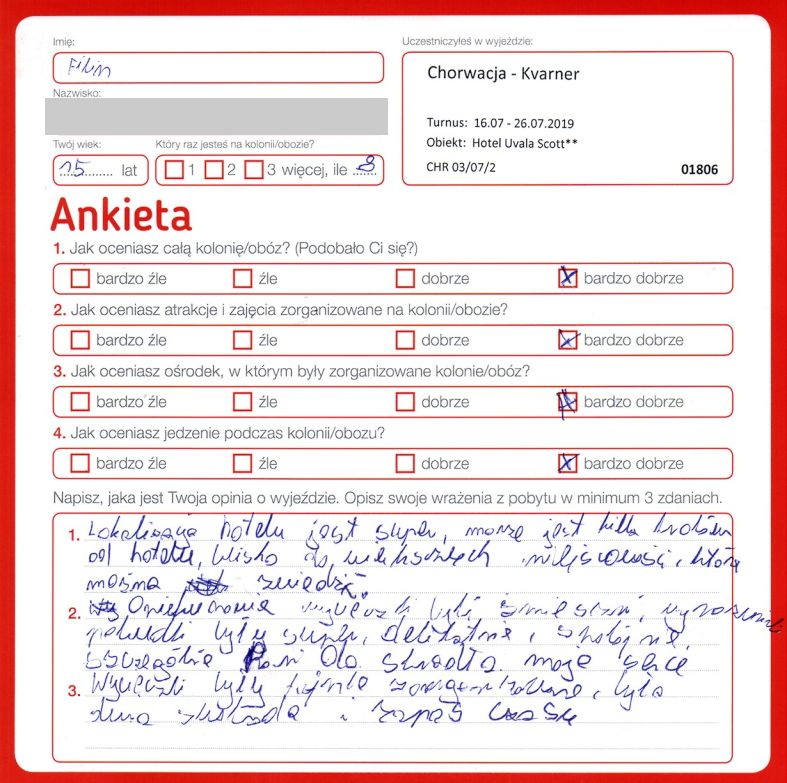 Imię:
Filip
Nazwisko:
Uczestniczyłeś w wyjeździe:
Chorwacja - Kvarner
Turnus: 16.07 - 26.07.2019
Obiekt: Hotel Uvala Scott**
CHR 03/07/2 01806
Twój wiek:
15 lat
Który raz jesteś na kolonii/obozie?
1 2 3 więcej, ile 8
Ankieta
1. Jak oceniasz całą kolonię/obóz? (Podobało Ci się?)
bardzo źle źle dobrze bardzo dobrze
2. Jak oceniasz atrakcje i zajęcia zorganizowane na kolonii/obozie?
bardzo źle źle dobrze bardzo dobrze
3. Jak oceniasz ośrodek, w którym były zorganizowane kolonie/obóz?
bardzo źle źle dobrze bardzo dobrze
4. Jak oceniasz jedzenie podczas kolonii/obozu?
bardzo źle źle dobrze bardzo dobrze
Napisz, jaka jest Twoja opinia o wyjeździe. Opisz swoje wrażenia z pobytu w minimum 3 zdaniach.
1. Lokalizacja hotelu jest super, morze jest kilka kroków
od hotelu, blisko do większych miejscowości, które
można zwiedzić.
2. byli śmieszni, wyrozumiali
pobudki były super, delikatnie i spokojnie,
szczególnie Pani Ola skradła moje serce
3. Wycieczki były fajnie zorganizowane, było
i zapas czasu